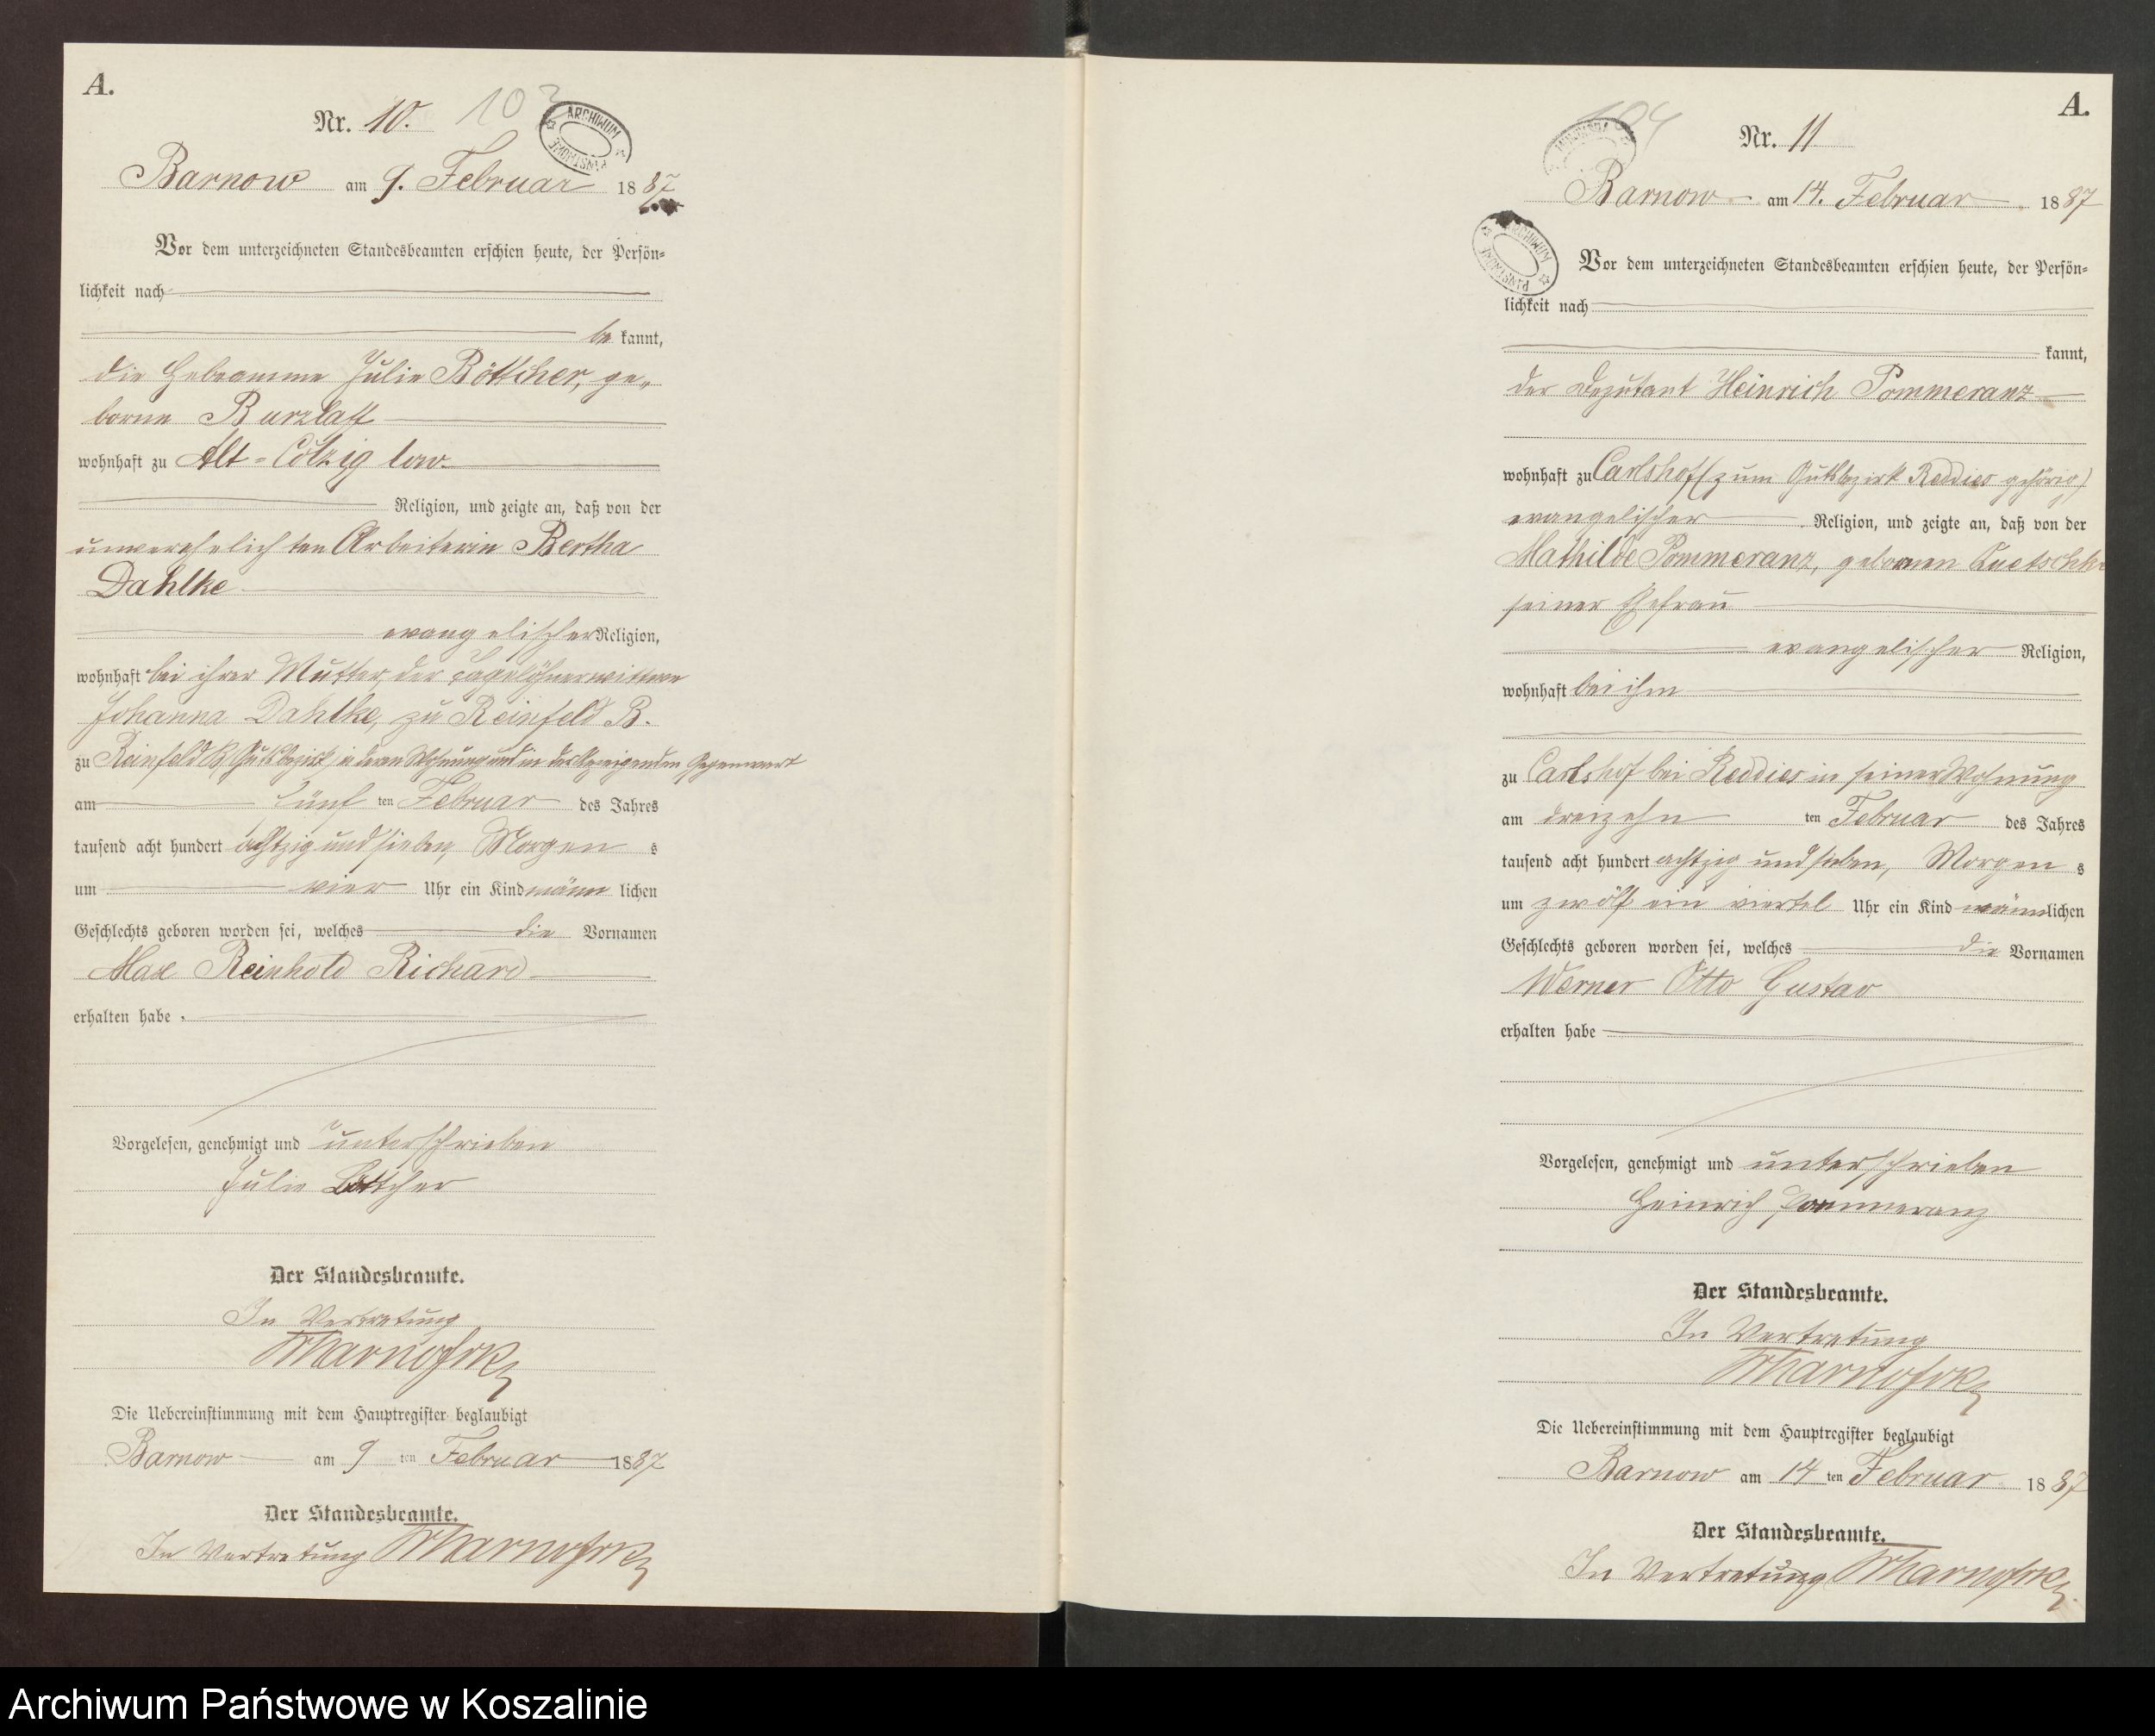 A.
Nr. 10. 103
ARCHIWUM PAŃSTWOWE
Barnow am 9. Februar 1887
Vor dem unterzeichneten Standesbeamten erschien heute, der Persön-
lichkeit nach
be kannt,
die Hebeamme Julie Böttcher, ge-
borne Burzlaff
wohnhaft zu Alt-Cölzig
Religion, und zeigte an, daß von der
unverehelichten Arbeiterin Bertha
Dahlke
evangelischer Religion,
wohnhaft bei ihrer Mutter, der Tagelöhnerwittwe
Johanna Dahlke, zu Reinfeld B.
zu Reinfeld B, Gutsbezirk, in deren Wohnung und in der Anzeigenden Gegenwart
am fünf ten Februar des Jahres
tausend acht hundert achtzig und sieben, Morgen s
um vier Uhr ein Kind männ lichen
Geschlechts geboren worden sei, welches die Vornamen
Max Reinhold Richard
erhalten habe.
Vorgelesen, genehmigt und unterschrieben
Julie Böttcher
Der Standesbeamte.
In Vertretung
Die Uebereinstimmung mit dem Hauptregister beglaubigt
Barnow am 9 ten Februar 1887
Der Standesbeamte.
In Vertretung
A.
104
Nr. 11
Barnow am 14. Februar 1887
ARCHIWUM PAŃSTWOWE
Vor dem unterzeichneten Standesbeamten erschien heute, der Persön-
lichkeit nach
kannt,
der Deputant Heinrich Pommeranz
wohnhaft zu Carlshof (zum Gutsbezirk Reddies gehörig)
evangelischer Religion, und zeigte an, daß von der
Mathilde Pommeranz, gebornen
seiner Ehefrau
evangelischer Religion,
wohnhaft bei ihm
zu Carlshof bei Reddies in seiner Wohnung
am dreizehn ten Februar des Jahres
tausend acht hundert achtzig und sieben, Morgen s
um zwölf ein viertel Uhr ein Kind männlichen
Geschlechts geboren worden sei, welches die Vornamen
Werner Otto Gustav
erhalten habe
Vorgelesen, genehmigt und unterschrieben
Heinrich Pommeranz
Der Standesbeamte.
In Vertretung
Die Uebereinstimmung mit dem Hauptregister beglaubigt
Barnow am 14 ten Februar 1887
Der Standesbeamte.
In Vertretung
Archiwum Państwowe w Koszalinie